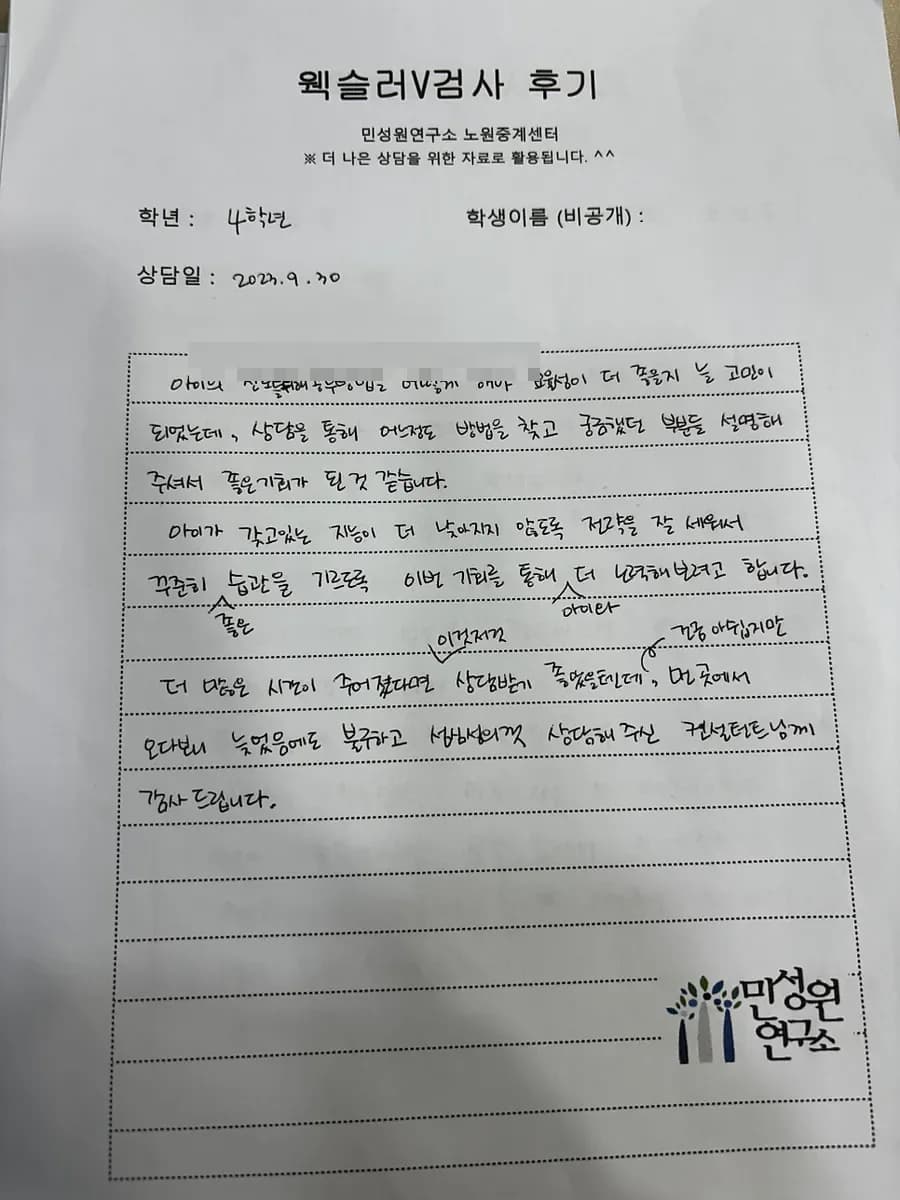 웩슬러V검사 후기
민성원연구소 노원중계센터
※ 더 나은 상담을 위한 자료로 활용됩니다. ^^
학년 : 4학년 학생이름 (비공개) :
상담일 : 2023.9.30
아이의 어떻게 해야 더 좋을지 늘 고민이
되었는데, 상담을 통해 어느정도 방법을 찾고 궁금했던 부분들 설명해
주셔서 좋은기회가 된 것 같습니다.
아이가 갖고있는 지능이 더 낮아지지 않도록 전략을 잘 세워서
꾸준히 좋은 습관을 기르도록 이번 기회를 통해 아이와 더 노력해보려고 합니다.
더 많은 시간이 주어졌다면 이것저것 상담받기 좋았을텐데, 아쉽지만 먼 곳에서
오다보니 늦었음에도 불구하고 성심성의껏 상담해 주신 컨설턴트님께
감사드립니다.
민성원
연구소